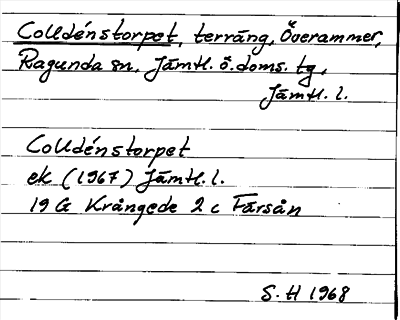 Colldénstorpet, terräng, Överammer,
Ragunda sn, Jämtl. ö. doms. tg,
Jämtl. l.
Colldénstorpet
ek (1967) Jämtl. l.
19 G Krångede 2 c Färsån
S. H 1968